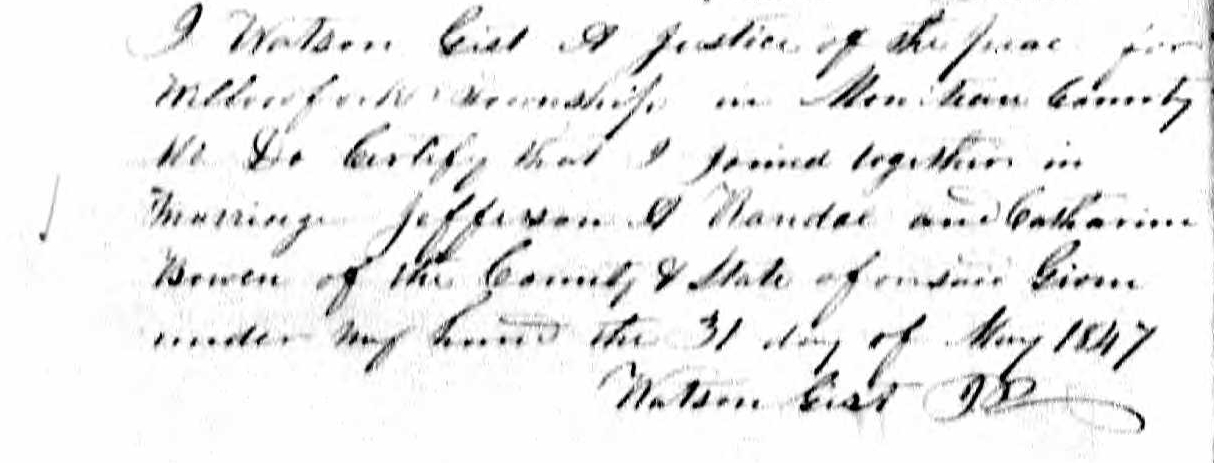 I Watson Gist A Justice of the peac for
Willowfork township in Moniteau County
Mo Do Certify that I joined together in
Marriage Jefferson A Randol and Catharine
Bowen of the County & State aforesaid Given
under my hand the 31 day of May 1847
Watson Gist JP